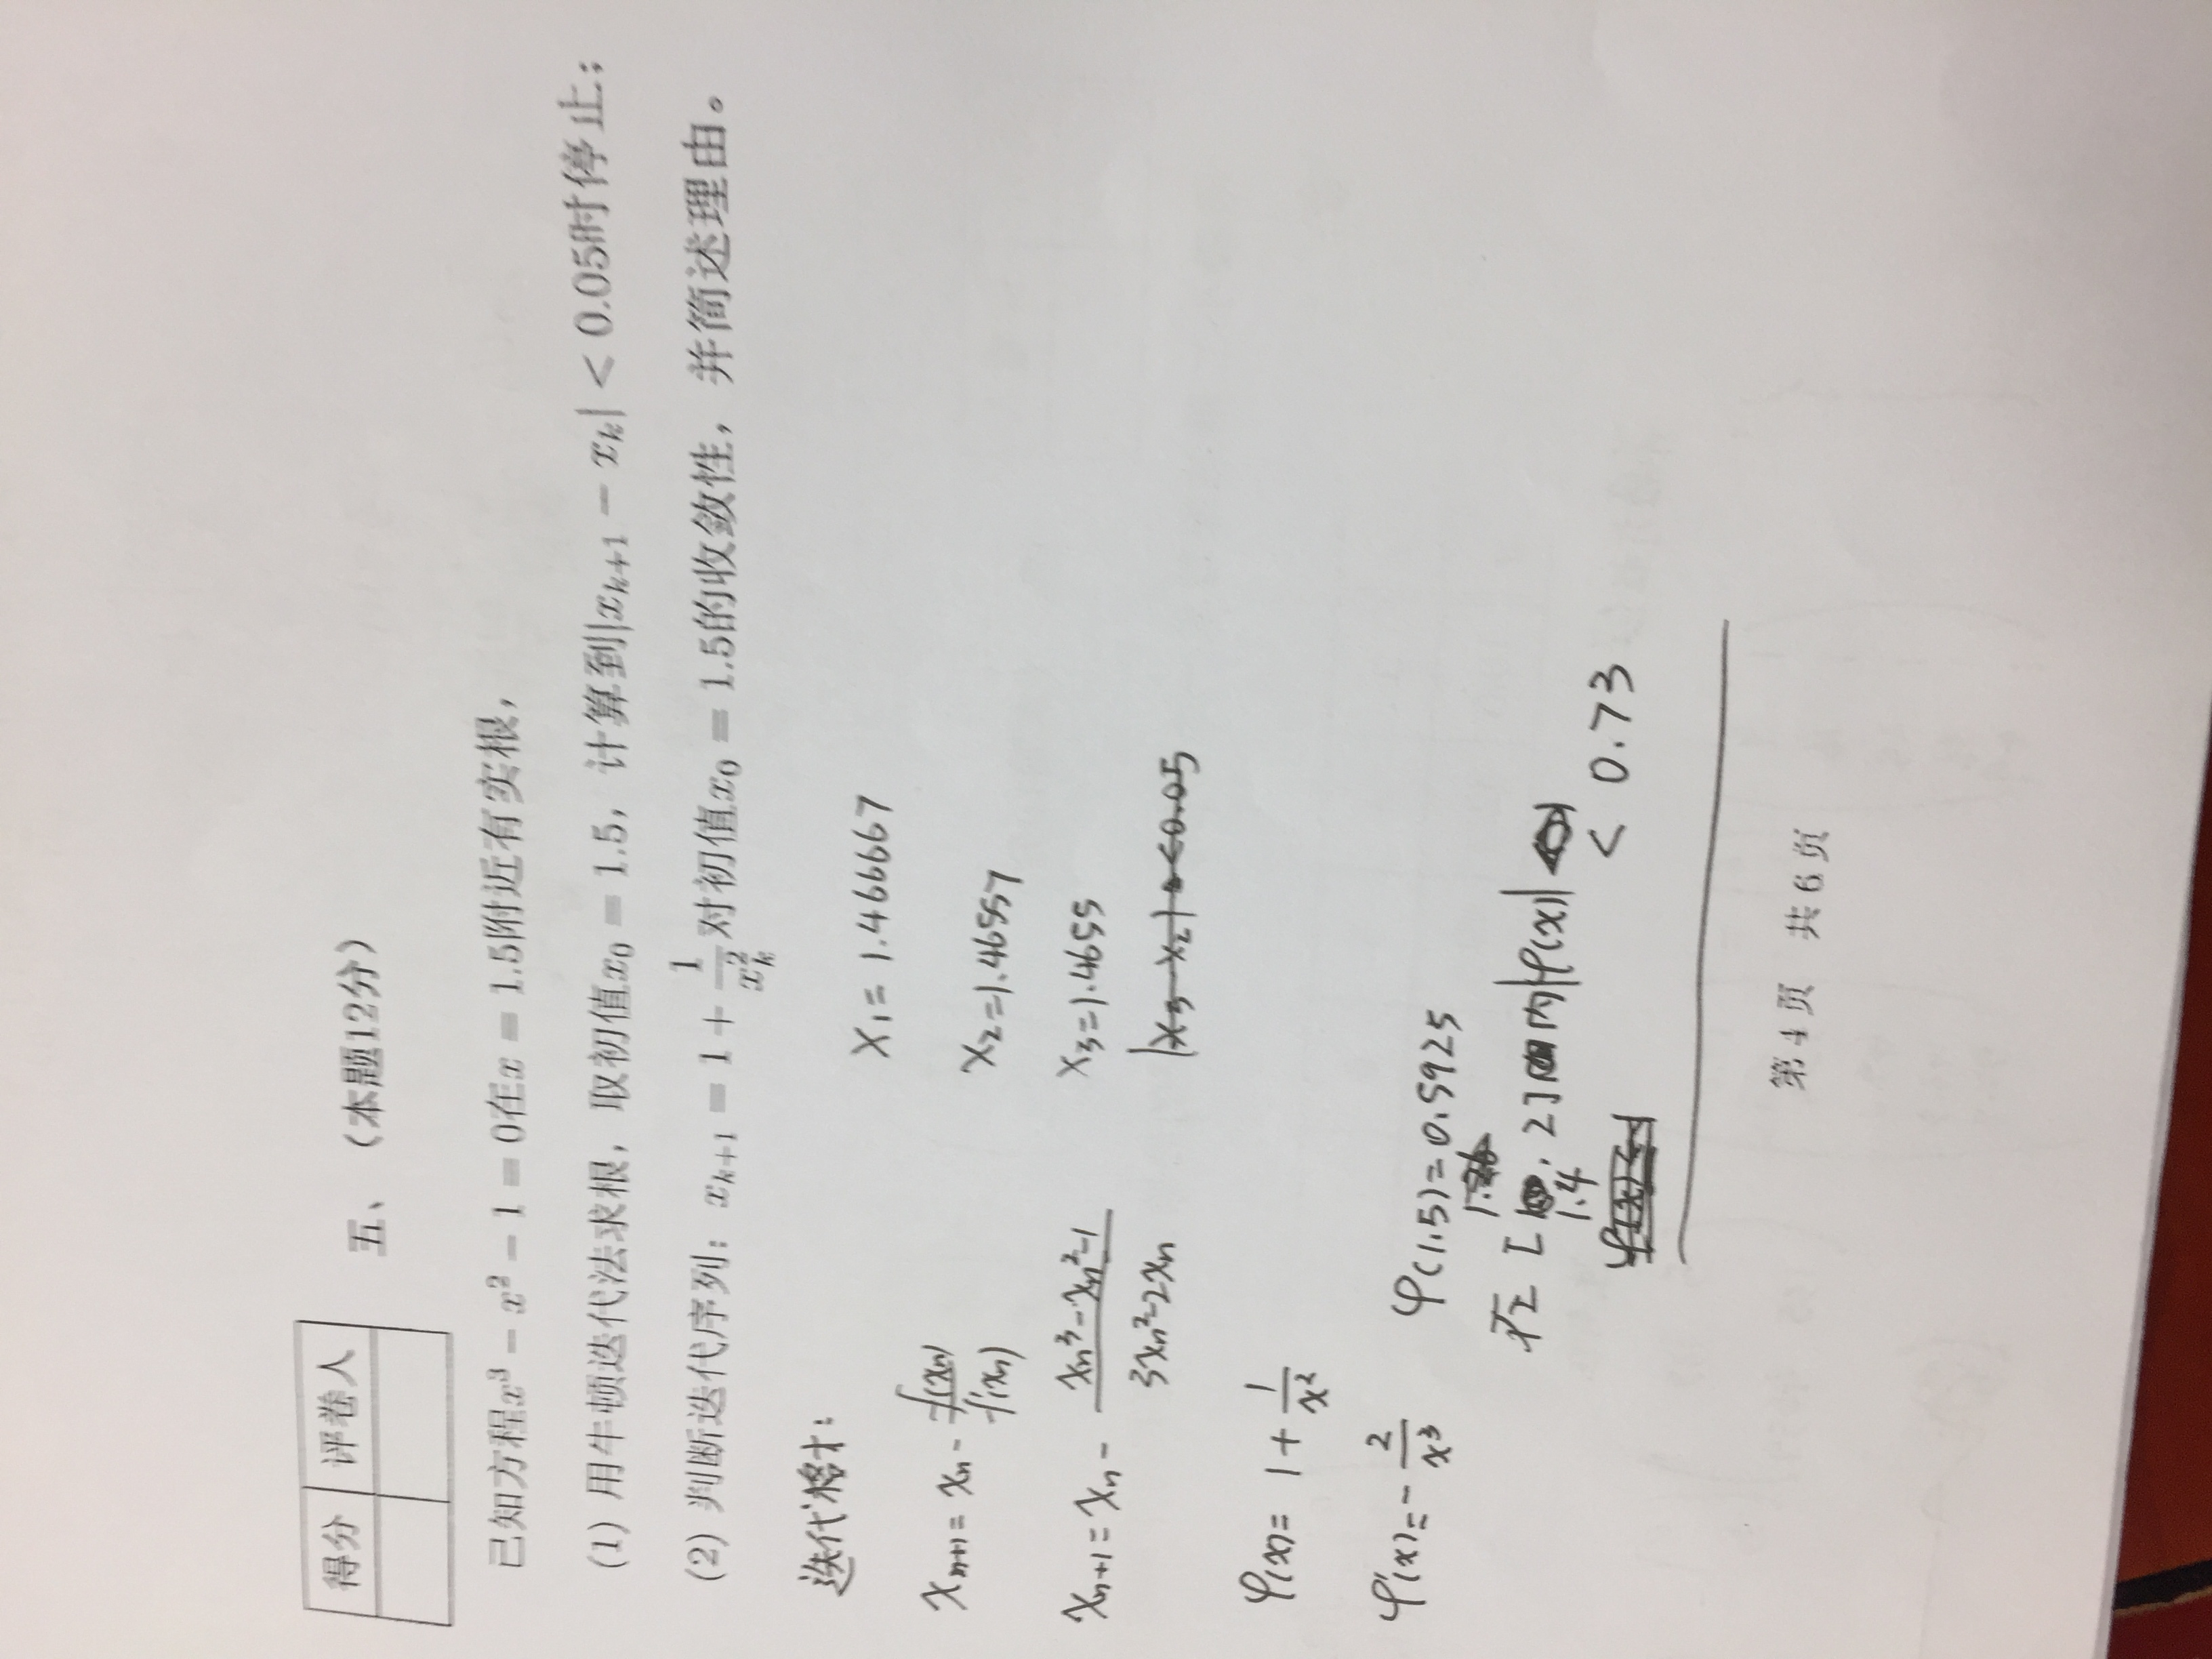 得分 评卷人
五、（本题12分）
已知方程x³ − x² − 1 = 0在x = 1.5附近有实根，
(1) 用牛顿迭代法求根，取初值x₀ = 1.5，计算到|xₖ₊₁ − xₖ| < 0.05时停止；
(2) 判断迭代序列：xₖ₊₁ = 1 + 1/xₖ² 对初值x₀ = 1.5的收敛性，并简述理由。
迭代格才:
xₙ₊₁ = xₙ - f(xₙ)/f'(xₙ)
xₙ₊₁ = xₙ - (xₙ³-xₙ²-1)/(3xₙ²-2xₙ)
x₁ = 1.466667
x₂ = 1.46557
x₃ = 1.4655
|x₃ x₂| < 0.05
φ(x) = 1 + 1/x²
φ'(x) = - 2/x³
φ(1.5) = 0.5925
在 [1.4, 2] 内 |φ(x)| < 0.73
第 4 页 共 6 页